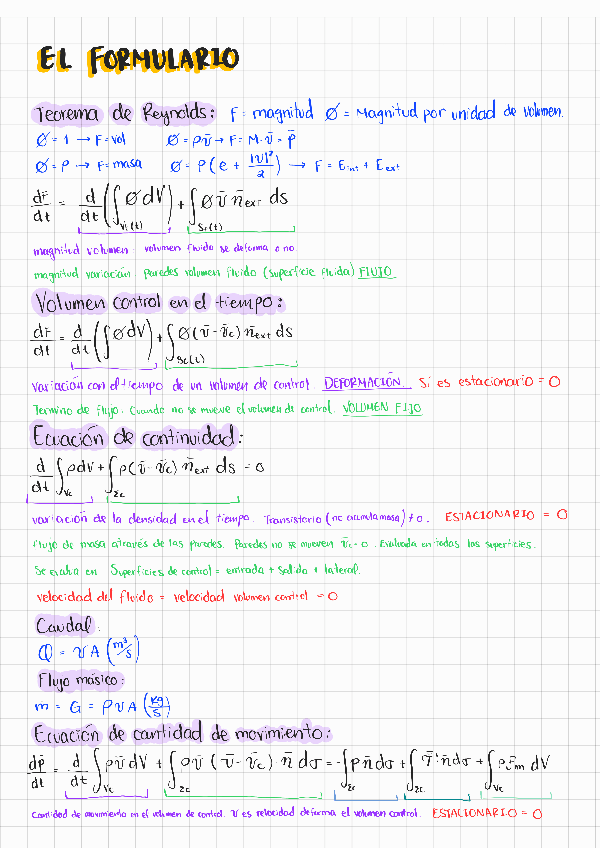 EL FORMULARIO
Teorema de Reynolds: F = magnitud Ø = Magnitud por unidad de volumen.
Ø = 1 → F = vol Ø = ρv̄ → F = M·v̄ = p̄
Ø = ρ → F = masa Ø = ρ(e + |v|²/2) → F = E int + E ext
dF/dt = d/dt (∫_Vf(t) Ø dV) + ∫_Sf(t) Ø v̄ n̄ext ds
magnitud volumen volumen fluido se deforma o no.
magnitud variación paredes volumen fluido (superficie fluida) FLUJO
Volumen control en el tiempo:
dF/dt = d/dt (∫ Ø dV) + ∫_Sc(t) Ø(v̄ - v̄c) n̄ext ds
variación con el tiempo de un volumen de control. DEFORMACIÓN. Si es estacionario = 0
Termino de flujo. Cuando no se mueve el volumen de control. VOLUMEN FIJO
Ecuación de continuidad:
d/dt ∫_Vc ρdV + ∫_Σc ρ(v̄ - v̄c) n̄ext ds = 0
variación de la densidad en el tiempo. Transistorio (no acumula masa) ≠ 0. ESTACIONARIO = 0
Flujo de masa através de las paredes. Paredes no se mueven v̄c = 0. Evaluada en todas las superficies.
Se evalua en Superficies de control = entrada + salida + lateral.
velocidad del fluido = velocidad volumen control = 0
Caudal:
Q = vA (m³/s)
Flujo másico:
m = G = ρvA (kg/s)
Ecuación de cantidad de movimiento:
dp̄/dt = d/dt ∫_Vc ρv̄ dV + ∫_Σc ρv̄ (v̄ - v̄c) n̄ dσ = -∫_Σc p n̄ dσ + ∫_Σc τ̄' n̄ dσ + ∫_Vc ρf̄m dV
Cantidad de movimiento en el volumen de control. v es velocidad deforma el volumen control. ESTACIONARIO = 0